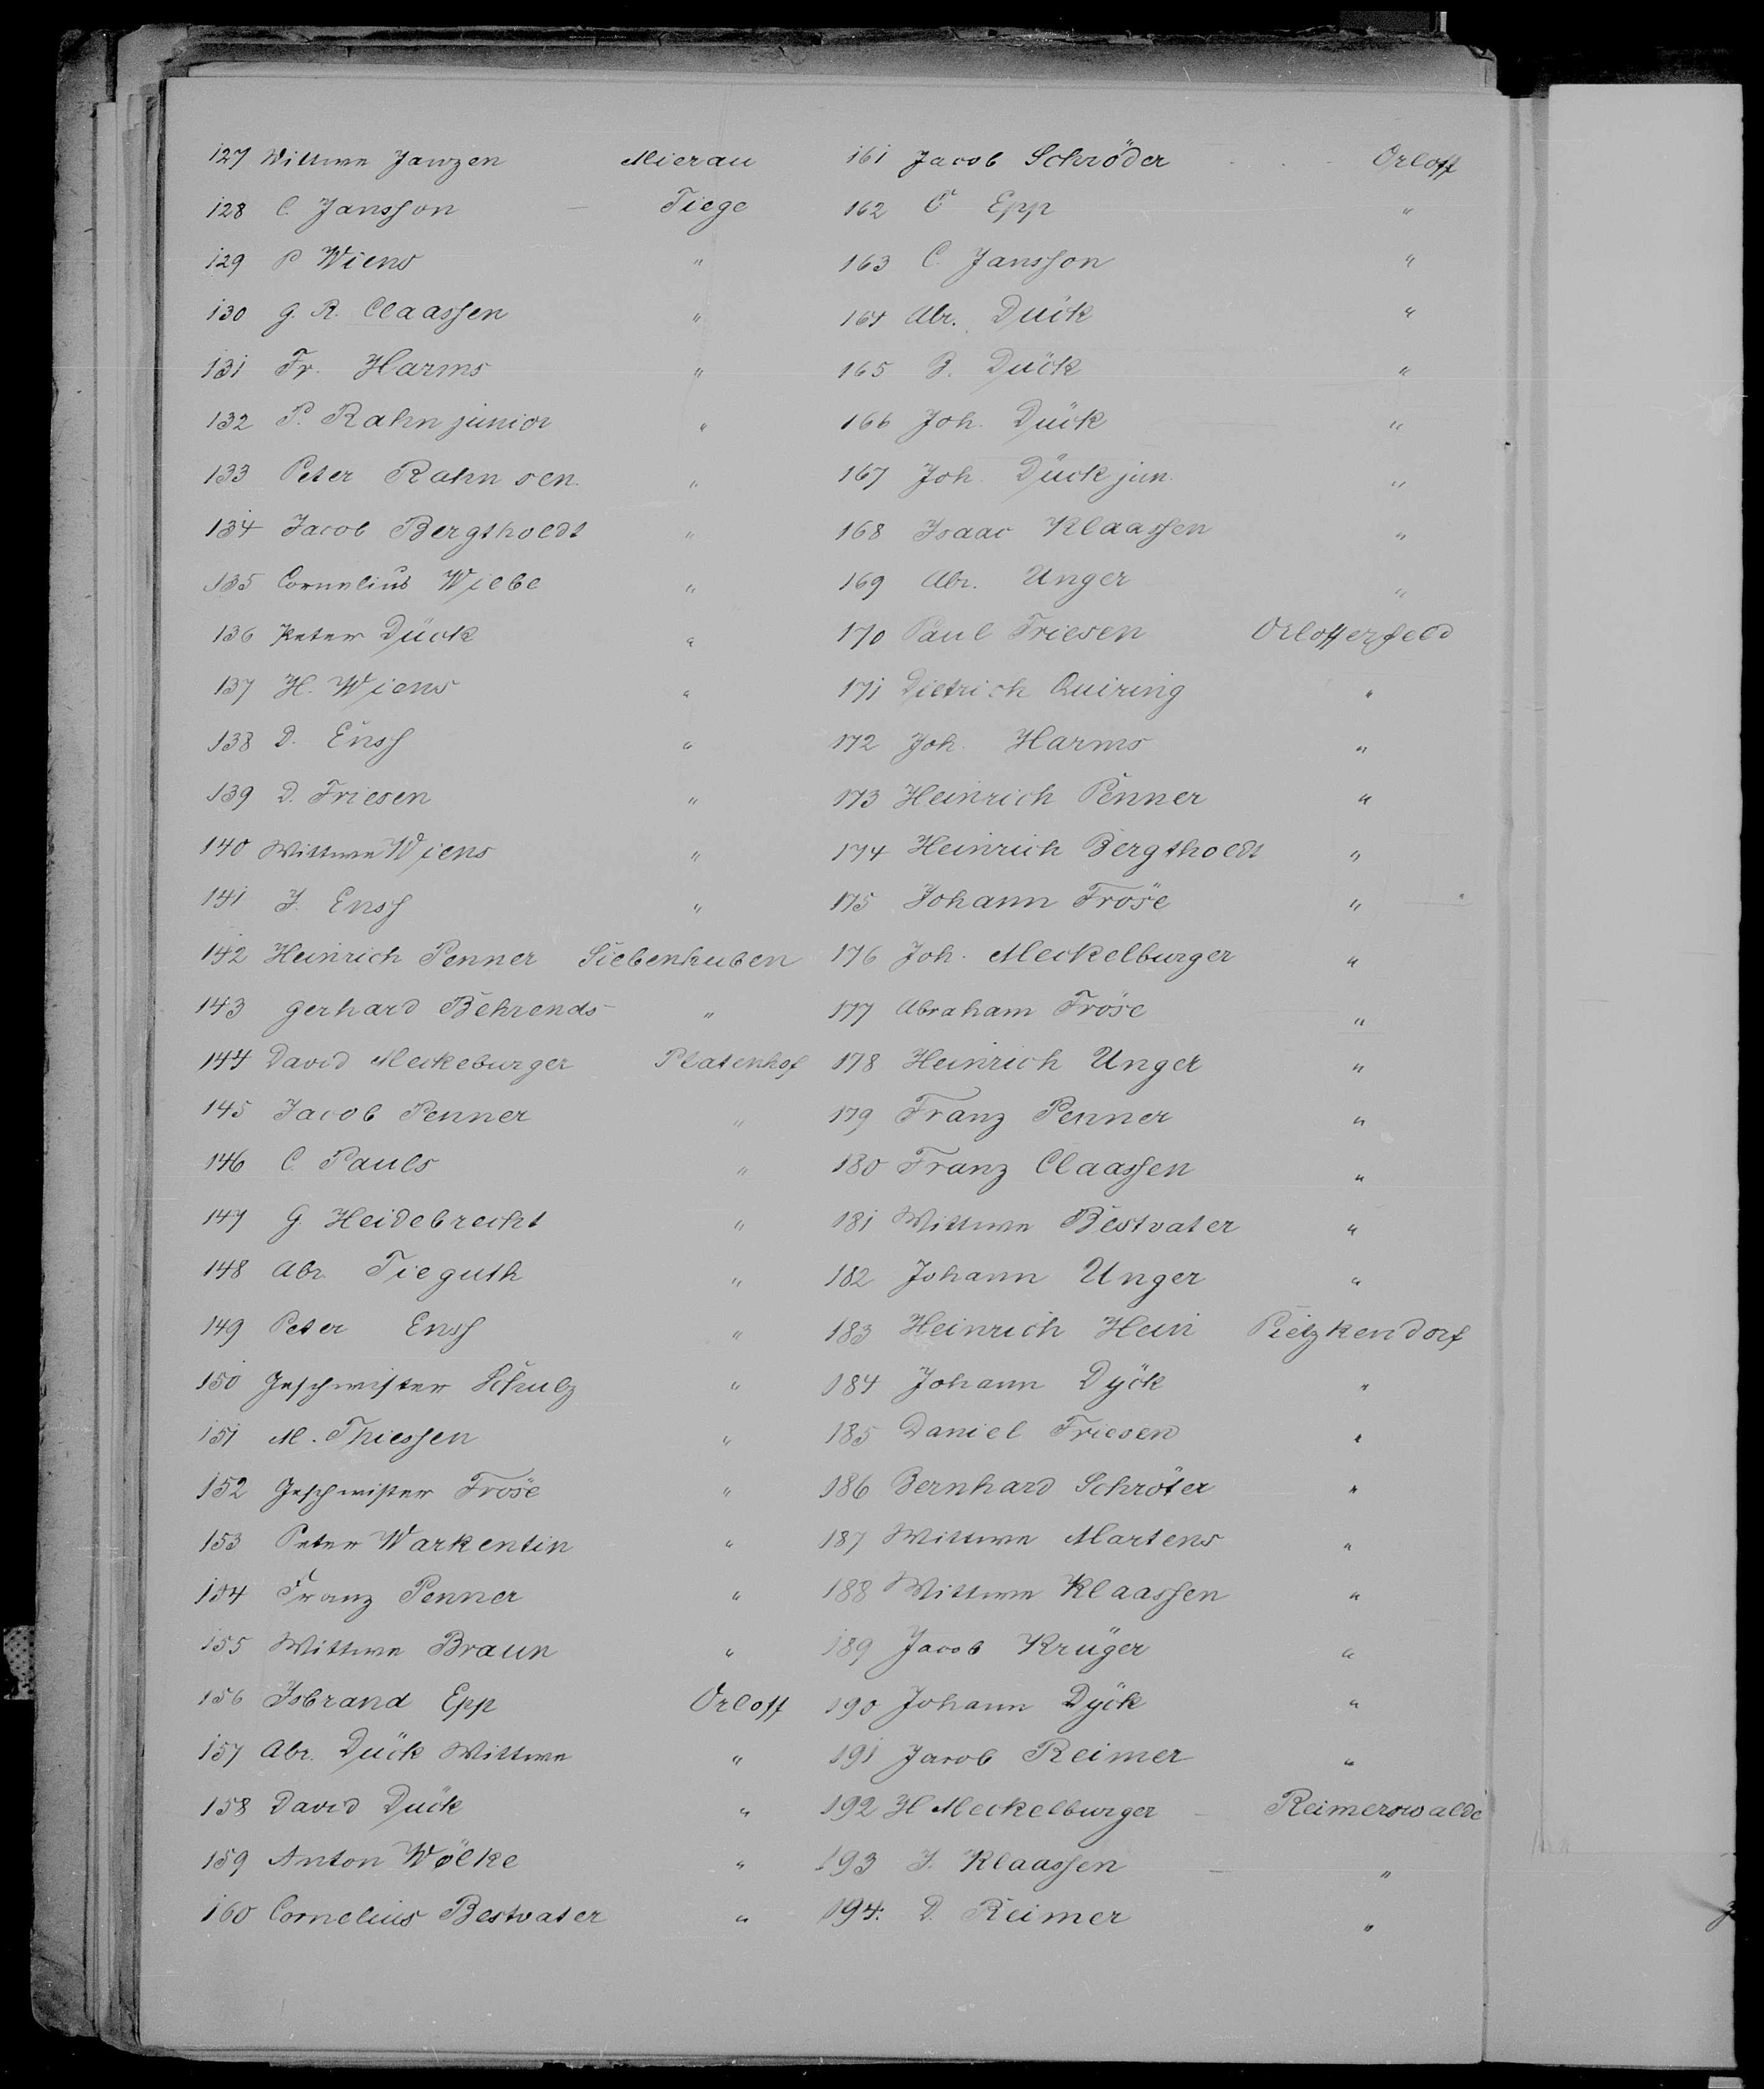 127 Wittwe Janzen Mierau
128 C. Jansson Tiege
129 P Wiens "
130 G. R. Claassen "
131 Fr. Harms "
132 P. Rahn junior "
133 Peter Rahn sen. "
134 Jacob Bergtholdt "
135 Cornelius Wiebe "
136 Peter Dück "
137 H. Wiens "
138 D. Enss "
139 D. Friesen "
140 Wittwe Wiens "
141 J. Enss "
142 Heinrich Penner Siebenhuben
143 Gerhard Behrends "
144 David Meckeburger Platenhof
145 Jacob Penner "
146 C Pauls "
147 G Heidebrecht "
148 Abr. Tieguth "
149 Peter Enss "
150 Geschwister Schulz "
151 M. Thiessen "
152 Geschwister Fröse "
153 Peter Warkentin "
154 Franz Penner "
155 Wittwe Braun "
156 Isbrand Epp Orloff
157 Abr. Dück Wittwe "
158 David Dück "
159 Anton Wölke "
160 Cornelius Bestvater "
161 Jacob Schröder Orloff
162 Epp "
163 C. Jansson "
164 Abr. Dück "
165 B. Dück "
166 Joh. Dück "
167 Joh. Dück jun. "
168 Isaac Klaassen "
169 Abr. Unger "
170 Paul Friesen Orlofferfeld
171 Dietrich Quiring "
172 Joh. Harms "
173 Heinrich Penner "
174 Heinrich Bergtholdt "
175 Johann Fröse "
176 Joh. Meckelburger "
177 Abraham Fröse "
178 Heinrich Unger "
179 Franz Penner "
180 Franz Claassen "
181 Wittwe Bestvater "
182 Johann Unger "
183 Heinrich Hein Pietzkendorf
184 Johann Dÿck "
185 Daniel Friesen "
186 Bernhard Schröter "
187 Wittwe Martens "
188 Wittwe Klaassen "
189 Jacob Krüger "
190 Johann Dÿck "
191 Jacob Reimer "
192 H Meckelburger Reimerswalde
193 J. Klaassen "
194. D. Reimer "